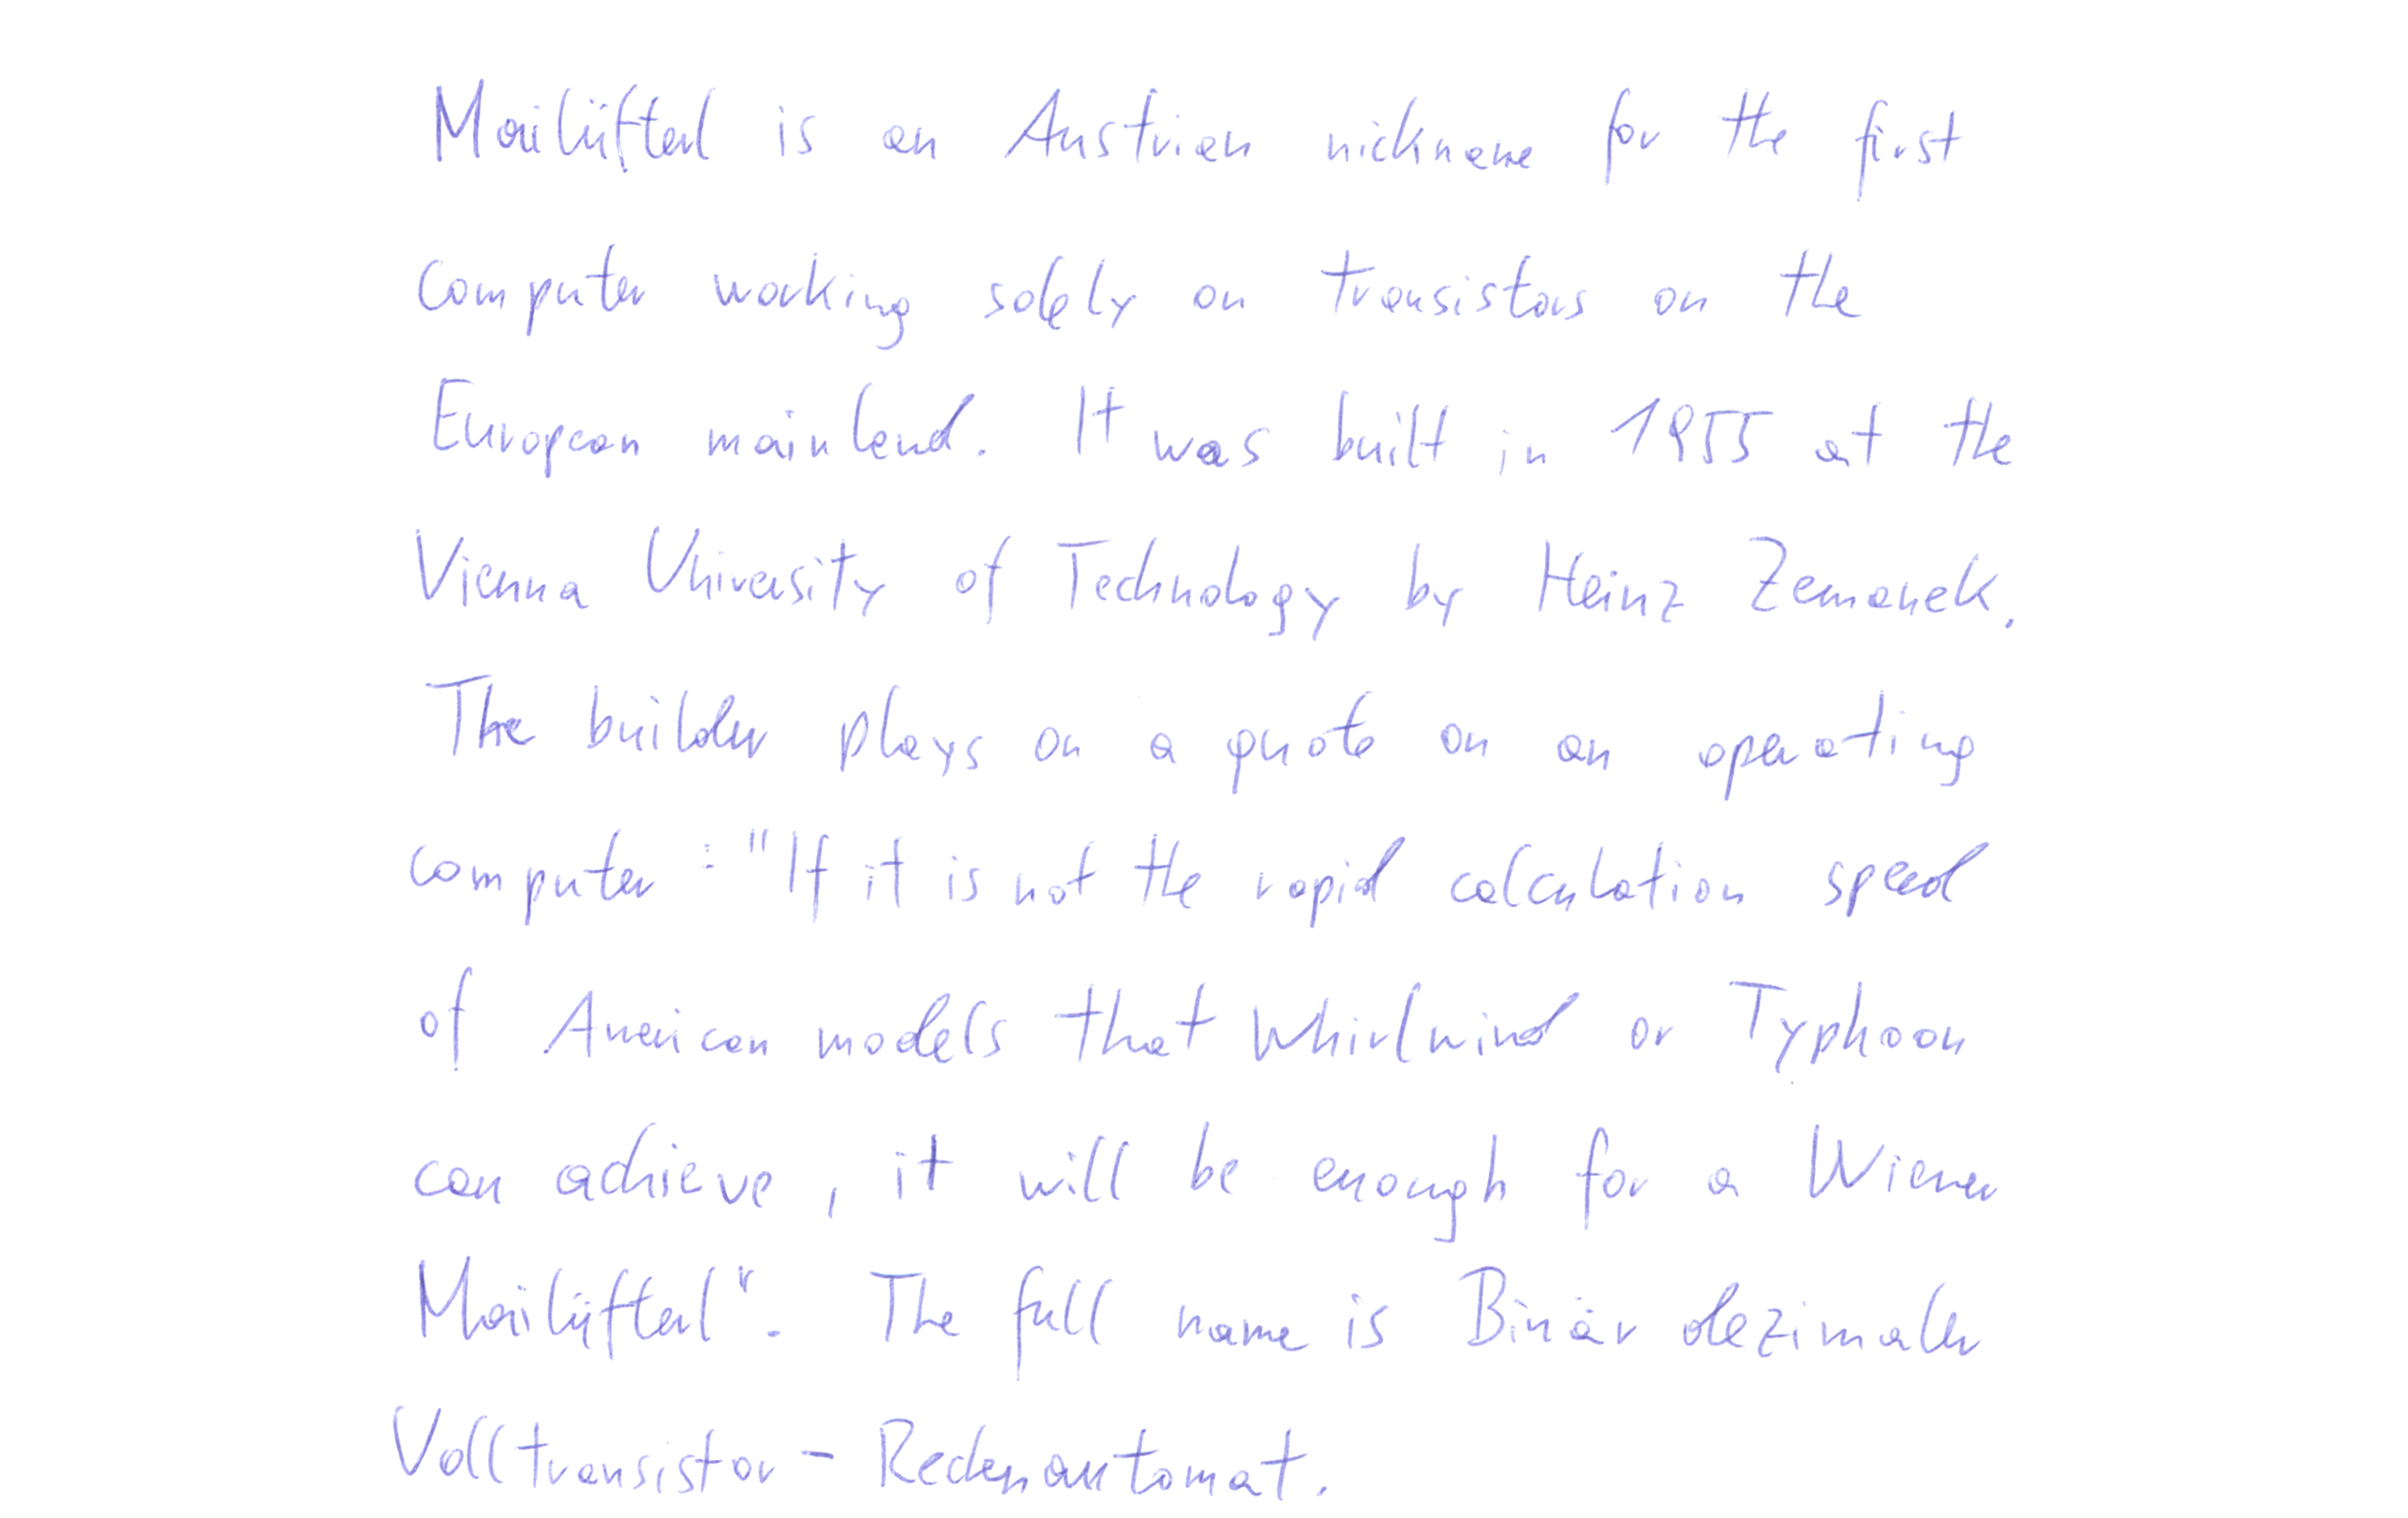 Mailüfterl is an Austrian nickname for the first
computer working solely on transistors on the
European mainland. It was built in 1955 at the
Vienna University of Technology by Heinz Zemanek.
The builder plays on a quote on an operating
computer: "If it is not the rapid calculation speed
of American models that Whirlwind or Typhoon
can achieve, it will be enough for a Wiener
Mailüfterl". The full name is Binär dezimaler
Volltransistor-Rechenautomat.